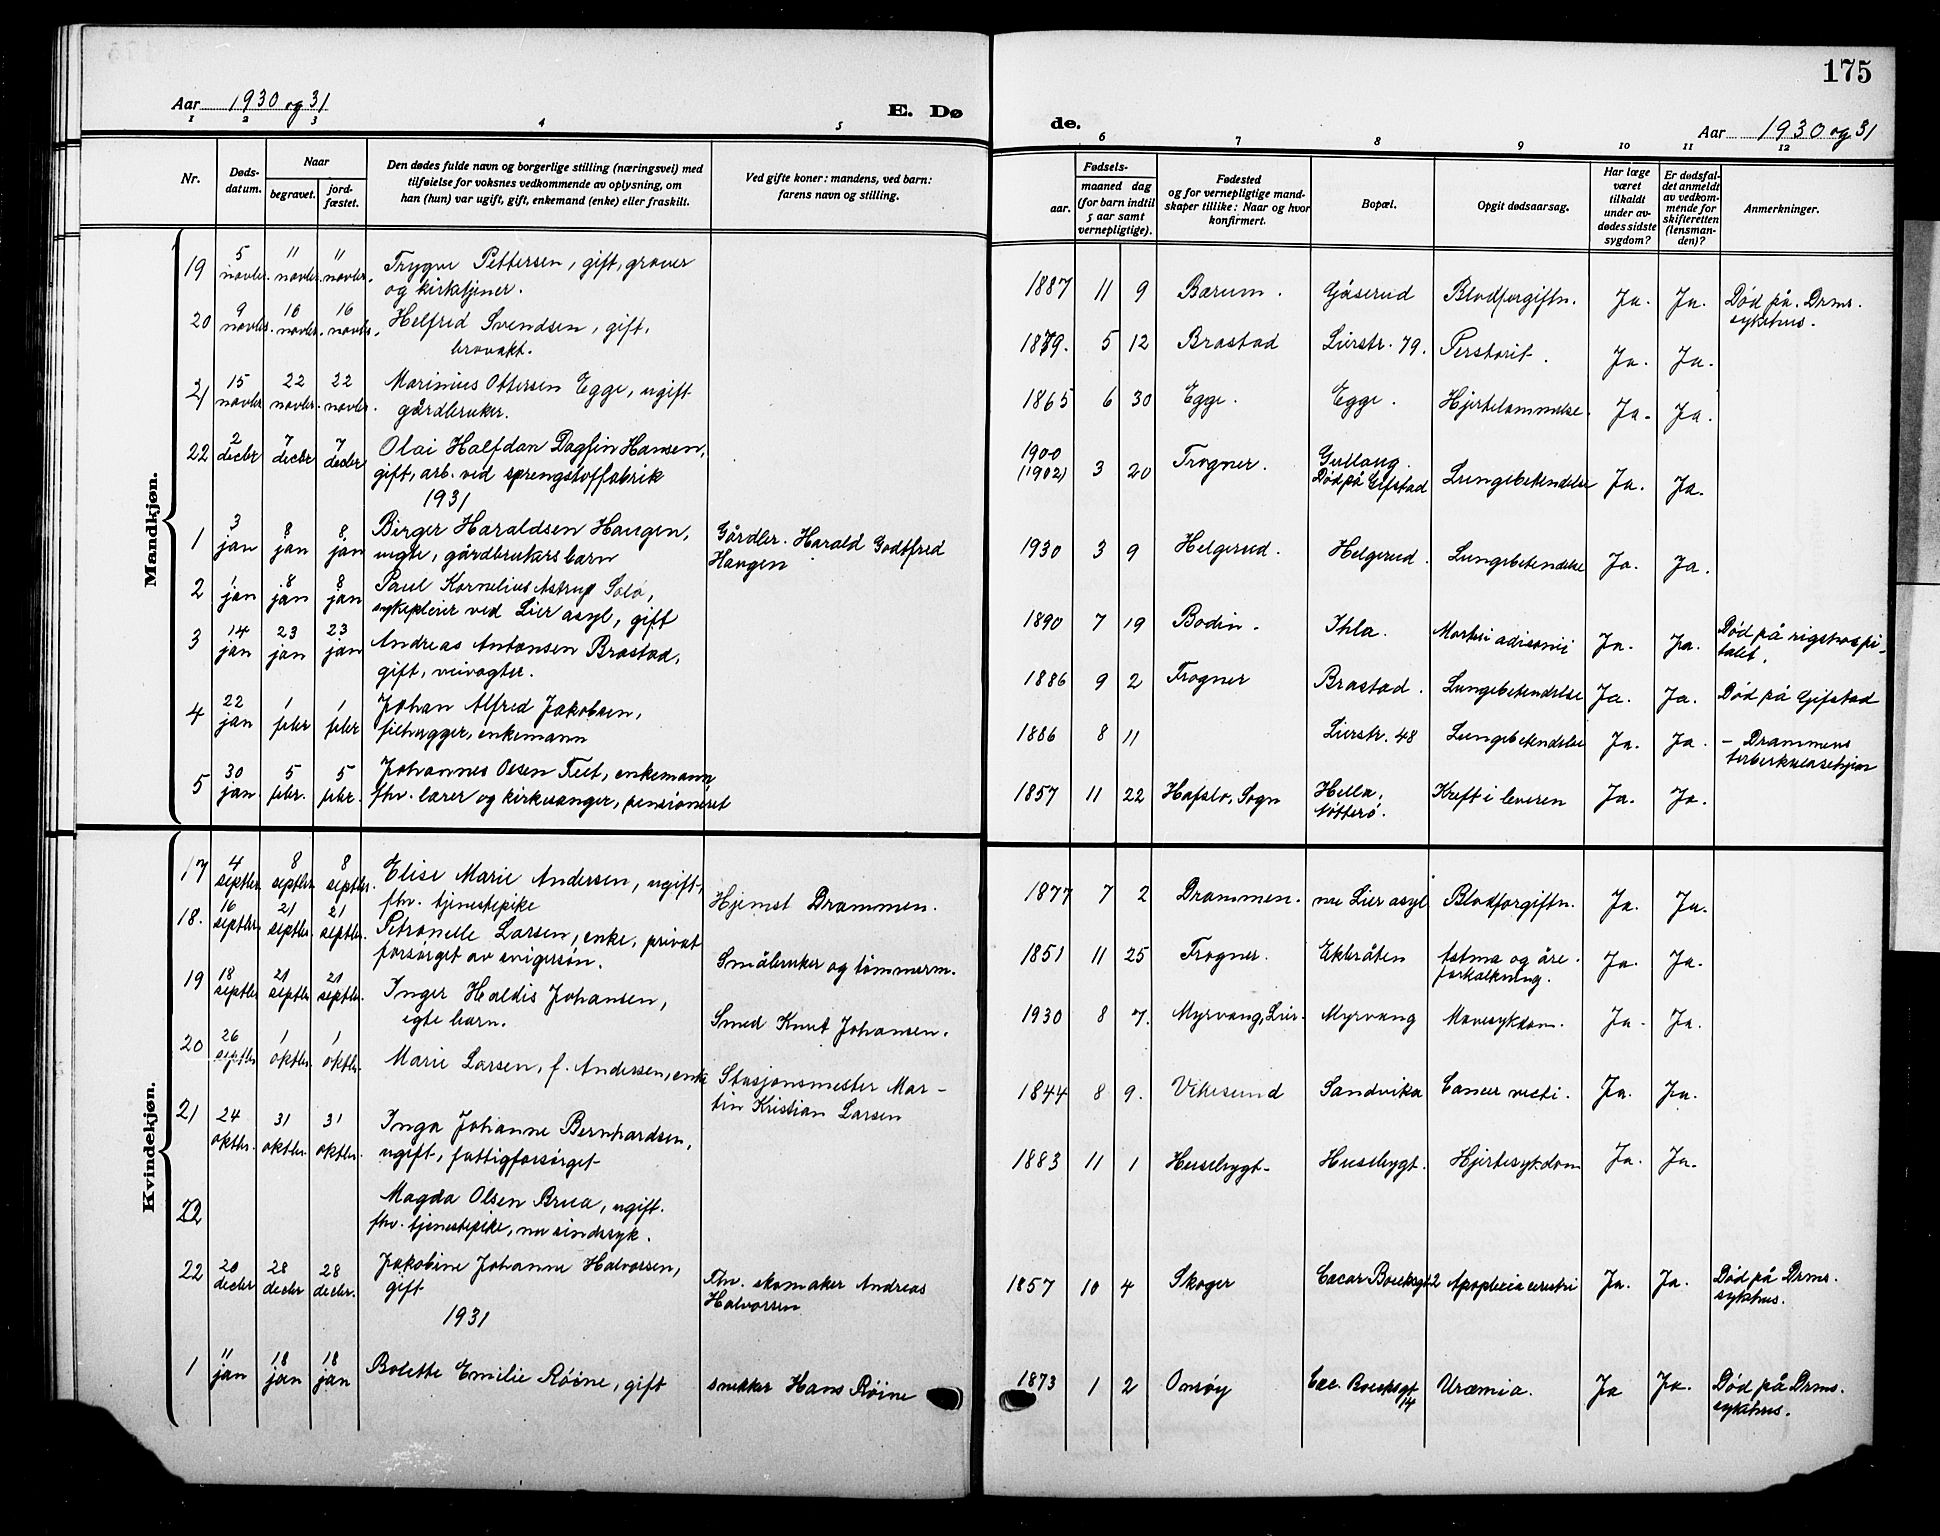 175
Aar 1930 og 31
E. Dø
de.
Aar 1930 og 31
1 2 3 4 5 6 7 8 9 10 11 12
Nr.
Døds-
datum.
Naar
begravet.
jord-
fæstet.
Den dødes fulde navn og borgerlige stilling (næringsvei) med
tilføielse for voksnes vedkommende av oplysning, om
han (hun) var ugift, gift, enkemand (enke) eller fraskilt.
Ved gifte koner: mandens, ved barn:
farens navn og stilling.
Fødsels-
aar.
maaned dag
(for barn indtil
5 aar samt
vernepligtige).
Fødested
og for vernepligtige mand-
skaper tillike: Naar og hvor
konfirmert.
Bopæl.
Opgit dødsaarsag.
Har læge
været
tilkaldt
under av-
dødes sidste
sygdom?
Er dødsfal-
det anmeldt
av vedkom-
mende for
skifteretten
(lensman-
den)?
Anmerkninger.
Mandkjøn.
19 5 novbr. 11 novbr. 11 novbr. Trygve Pettersen, gift, graver
og kirketjener.
1887 11 9 Bærum. Gåserud Blodforgiftn. Ja. Ja. Død på Drms.
sykehus.
20 9 novbr. 16 novbr. 16 novbr. Helfred Svendsen, gift,
brovakt.
1879. 5 12 Brastad Lierstr. 79. Ja. Ja.
21 15 novbr 22 novbr. 22 novbr. Marinius Ottersen Egge, ugift
gårdbruker.
1865 6 30 Egge. Egge. Hjertelammelse. Ja. Ja.
22 2 decbr 7 decbr 7 decbr Olai Halfdan Dagfin Hansen,
gift, arb. ved sprengstoffabrik
1900
(1902) 3 20 Frogner. Gullaug.
Død på Gifstad Lungebetendelse Ja. Ja.
1931
1 3 jan 8 jan 8 jan Birger Haraldsen Haugen,
egte, gårdbrukers barn
Gårdbr. Harald Godtfred
Haugen
1930 3 9 Helgerud. Helgerud. Lungebetendelse Ja. Ja.
2 1 jan 8 jan 8 jan Paul Kornelius Astrup Solø,
sykepleier ved Lier asyl, gift
1890 7 19 Bodin. Ihla. Ja. Ja. Død på rigshospi-
talet.
3 14 jan 23 jan 23 jan Andreas Antonsen Brastad,
gift, veivogter.
1886 9 2 Frogner Brastad. Lungebetendelse Ja. Ja. Død på Gifstad
4 22 jan 1 febr 1 febr Johan Alfred Jakobsen,
filhugger, enkemann
1886 8 11 Lierstr. 48 Lungebetendelse Ja. Ja. - Drammens
tuberkulosehjem
5 30 jan. 5 febr. 5 febr. Johannes Olsen Feet, enkemann
fhv. lærer og kirkesanger, pensionert
1857 11 22 Hafslo, Sogn Hella,
Nøtterø. Kreft i leveren Ja. Ja.
Kvindekjøn.
17 4 septbr. 8 septbr. 8 septbr. Elise Marie Andersen, ugift,
fhv. tjenestepike
Hjemst Drammen.
1877 7 2 Drammen. nu Lier asyl Blodforgiftn. Ja. Ja.
18. 16 septbr. 21 septbr. 21 septbr. Petronelle Larsen, enke, privat
forsørget av svigersøn.
Småbruker og tømmerm.
1851 11 25 Frogner. Ekbråten Astma og åre-
forkalkning. Ja. Ja.
19 18 septbr 21 septbr 21 septbr. Inger Haldis Johansen,
egte barn.
Smed Knut Johansen.
1930 8 7. Myrvang, Lier. Myrvang Mavesykdom. Ja. Ja.
20 26 septbr 1 oktbr. 1 oktbr. Marie Larsen, f. Andersen, enke
Stasjonsmester Mar-
tin Kristian Larsen
1844 8 9. Vikesund Sandvika Ja. Ja.
21 24 oktbr. 31 oktbr. 31 oktbr. Inga Johanne Bernhardsen,
ugift, fattigforsørget
1883 11 1 Husebygt. Husebygt. Hjertesykdom Ja. Ja.
22 Magda Olsen Brua, ugift.
fhv. tjenestepike, nu sindssyk.
22 20 decbr 28 decbr 28 decbr. Jakobine Johanne Halvorsen,
gift
Fhv. skomaker Andreas
Halvorsen
1857 10 4 Skoger Cæcar Boeksgt 2 Apoplexia cerebri Ja. Ja. Død på Drms.
sykehus.
1931
1 11 jan 18 jan 18 jan Bolette Emilie Røine, gift
snekker Hans Røine
1873 1 2 Onsøy Cæc. Boeksgt
14 Uræmia. Ja Ja. Død på Drms.
sykehus.